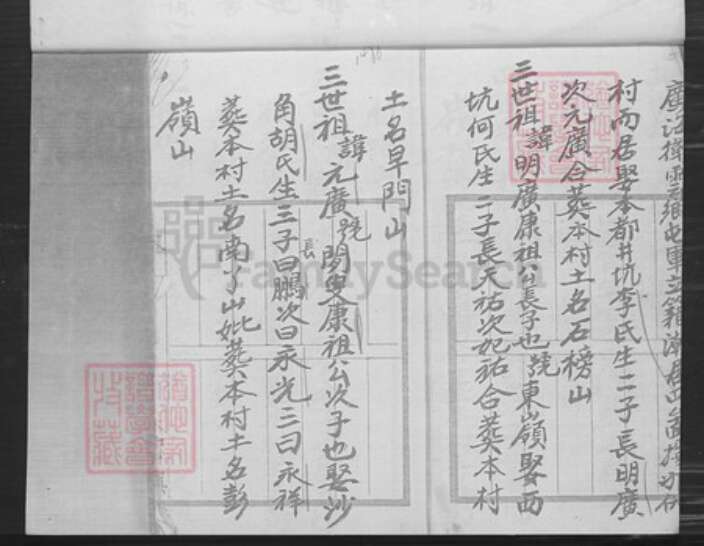 村而居娶本都井坑李氏生二子長明廣
次元廣合葬本村土名石榜山
三世祖諱明廣康祖公長子也號東嶺娶西
坑何氏生二子長天祐次祀祐合葬本村
土名早門山
三世祖諱元廣號閑叟康祖公次子也娶沙
角胡氏生三子長曰鵬次曰永光三曰永祥
葬本村土名南了山妣葬本村土名彭
嶺山
FamilySearch